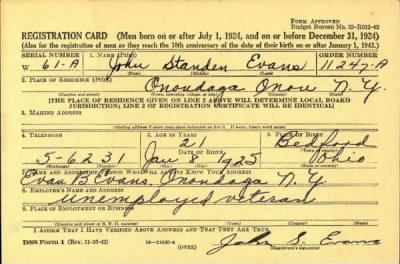 FORM APPROVED
Budget Bureau No. 33-R012-42
REGISTRATION CARD (Men born on or after July 1, 1924, and on or before December 31, 1924)
(Also for the registration of men as they reach the 18th anniversary of the date of their birth on or after January 1, 1943.)
SERIAL NUMBER 1. NAME (Print) ORDER NUMBER
W 61-A John Standen Evans 11247-A
(First) (Middle) (Last)
2. PLACE OF RESIDENCE (Print)
Onondaga Onon N.Y.
(Number and street) (Town, township, village, or city) (County) (State)
[THE PLACE OF RESIDENCE GIVEN ON LINE 2 ABOVE WILL DETERMINE LOCAL BOARD
JURISDICTION; LINE 2 OF REGISTRATION CERTIFICATE WILL BE IDENTICAL]
3. MAILING ADDRESS
[Mailing address if other than place indicated on line 2. If same, insert word same]
4. TELEPHONE 5. AGE IN YEARS 6. PLACE OF BIRTH
21 Bedford
DATE OF BIRTH
5-6231 Jan 8 1925 Ohio
7. NAME AND ADDRESS OF PERSON WHO WILL ALWAYS KNOW YOUR ADDRESS
Evan B Evans, Onondaga N.Y
8. EMPLOYER'S NAME AND ADDRESS
Unemployed veteran
9. PLACE OF EMPLOYMENT OR BUSINESS
I AFFIRM THAT I HAVE VERIFIED ABOVE ANSWERS AND THAT THEY ARE TRUE.
DSS Form 1 (Rev. 11-16-42) 16-21630-4 (OVER) John S. Evans
(Registrant's signature)